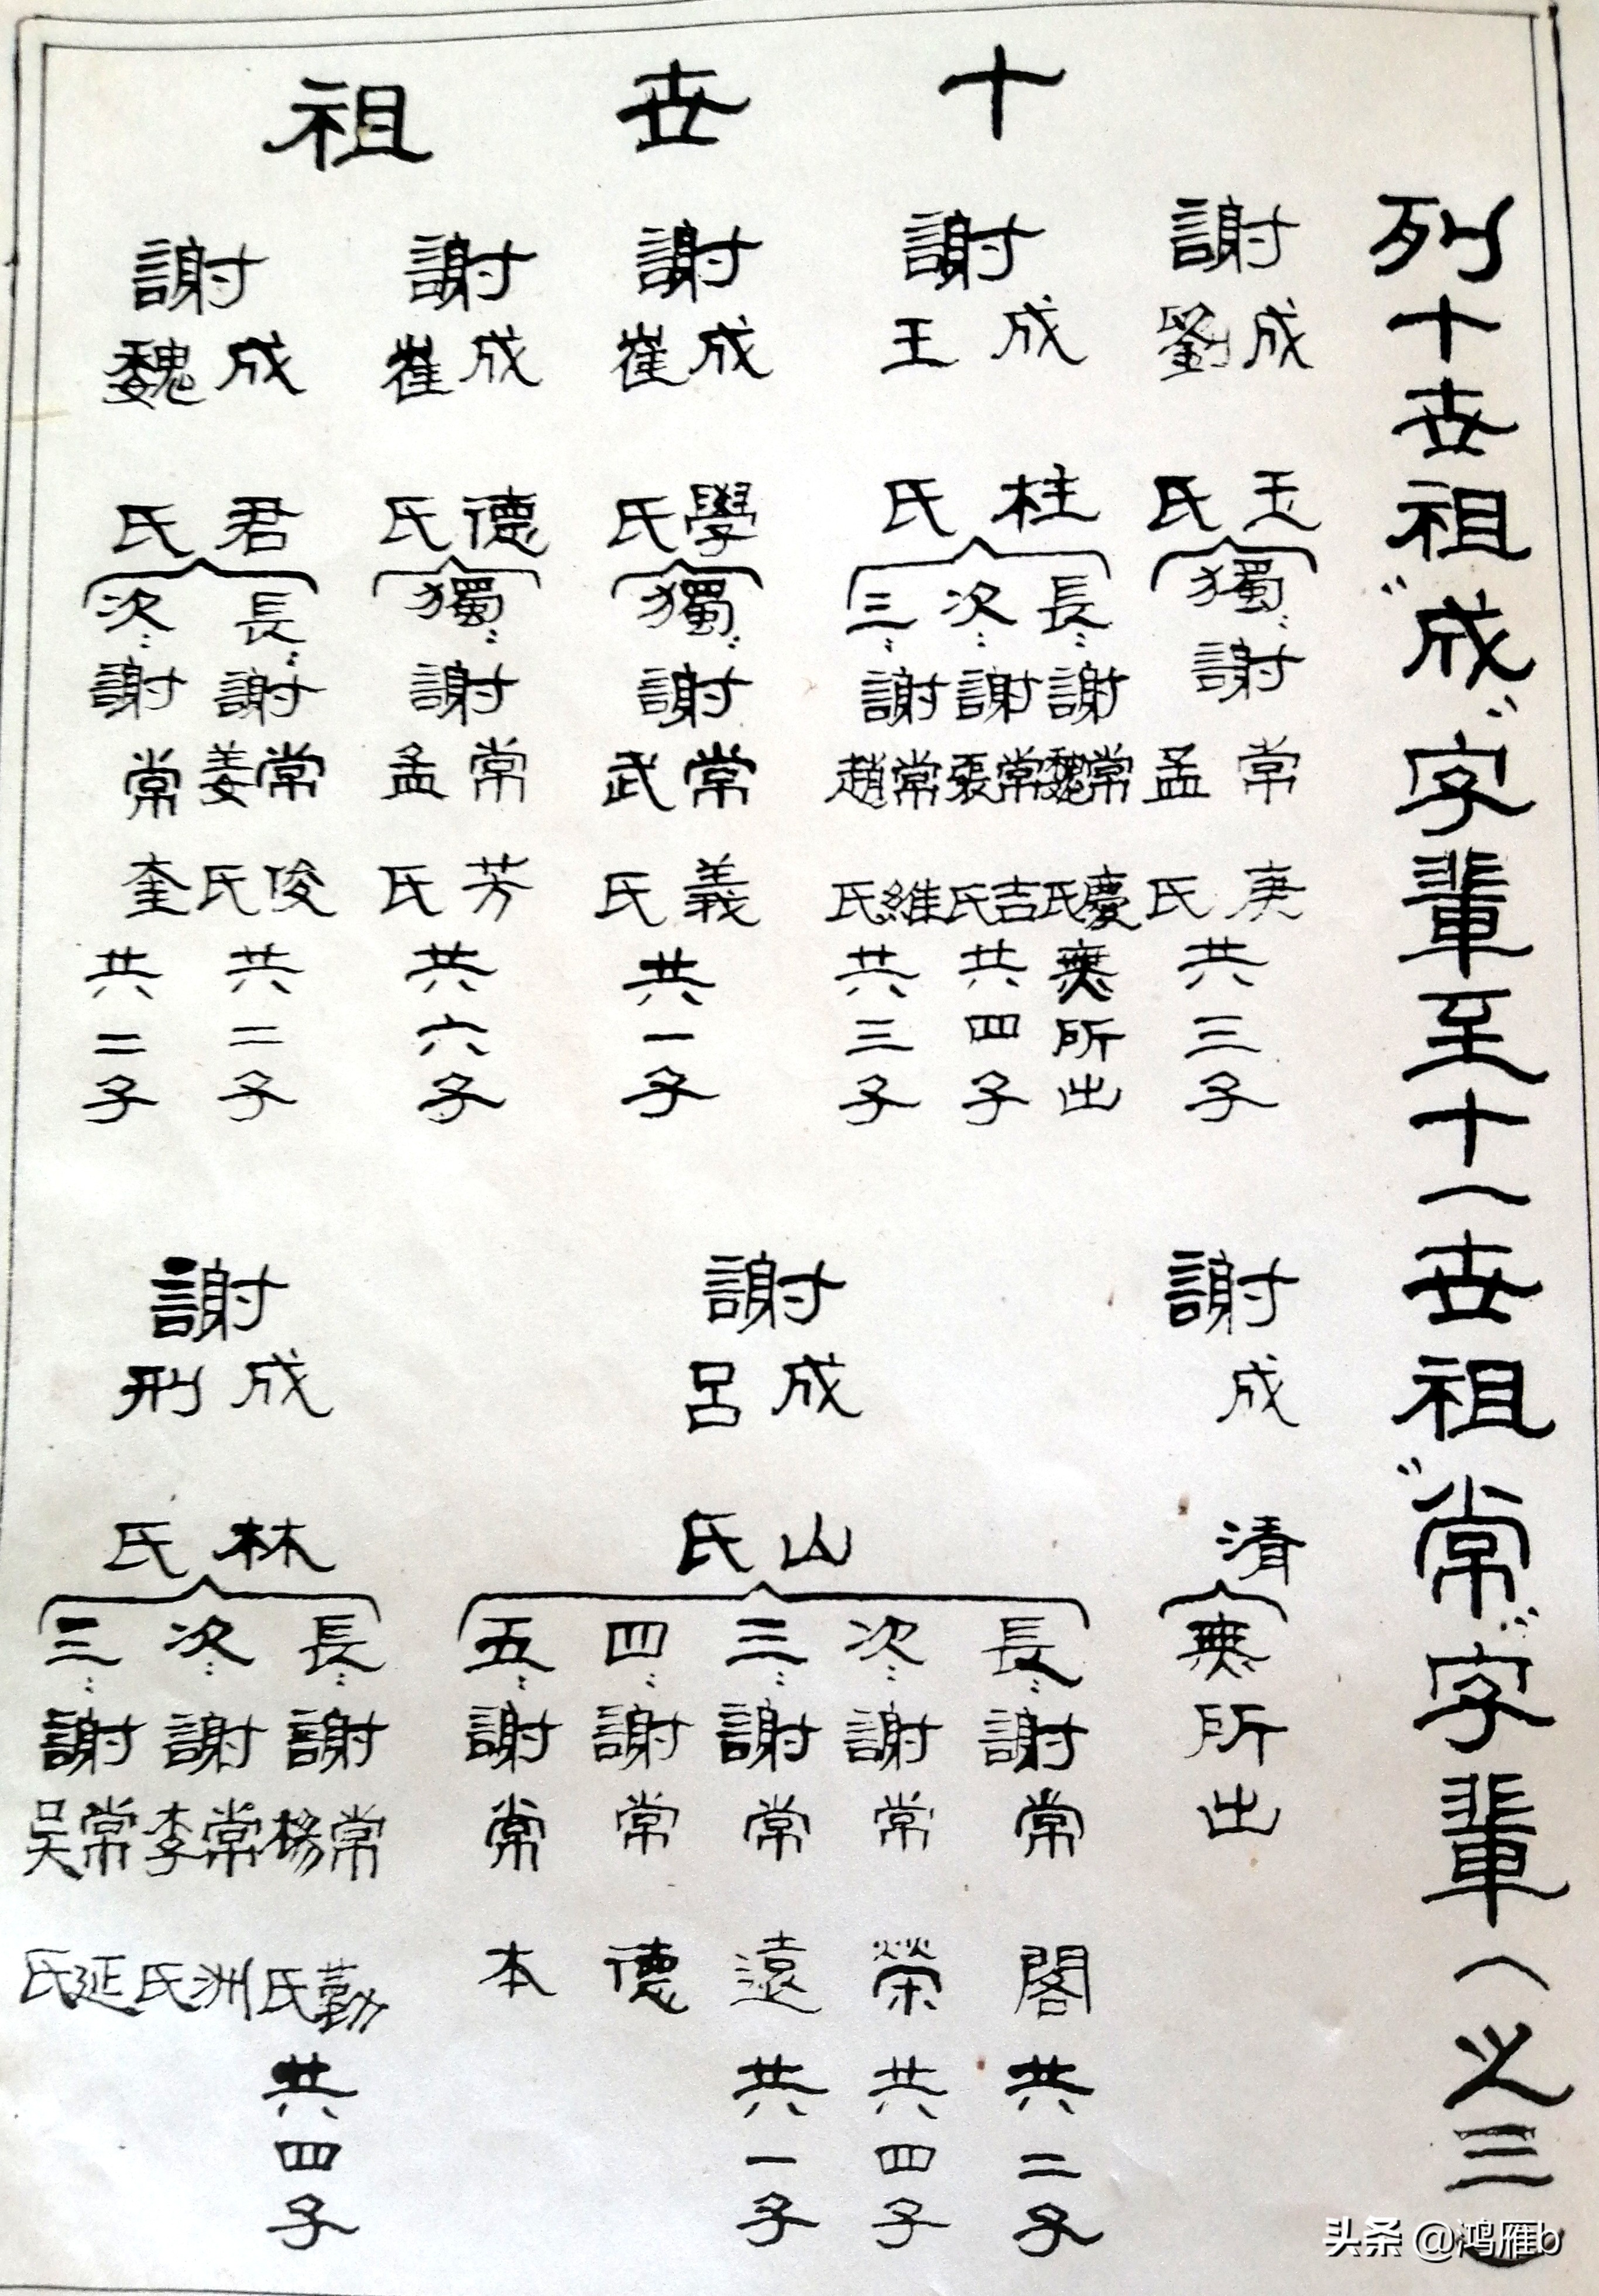 列十世祖“成”字輩至十一世祖“常”字輩(之三)
十世祖
謝成玉
劉氏
獨:謝常庚
孟氏
共三子
謝成柱
王氏
長:謝常慶
魏氏
無所出
次:謝常吉
張氏
共四子
三:謝常維
趙氏
共三子
謝成學
崔氏
獨:謝常義
武氏
共一子
謝成德
崔氏
獨:謝常芳
孟氏
共六子
謝成君
魏氏
長:謝常俊
姜氏
共二子
次:謝常奎
共二子
謝成清
無所出
謝成山
呂氏
長:謝常閣
共二子
次:謝常榮
共四子
三:謝常遠
共一子
四:謝常德
五:謝常本
謝成林
刑氏
長:謝常勤
楊氏
共四子
次:謝常洲
李氏
三:謝常延
吴氏
头条 @鸿雁b